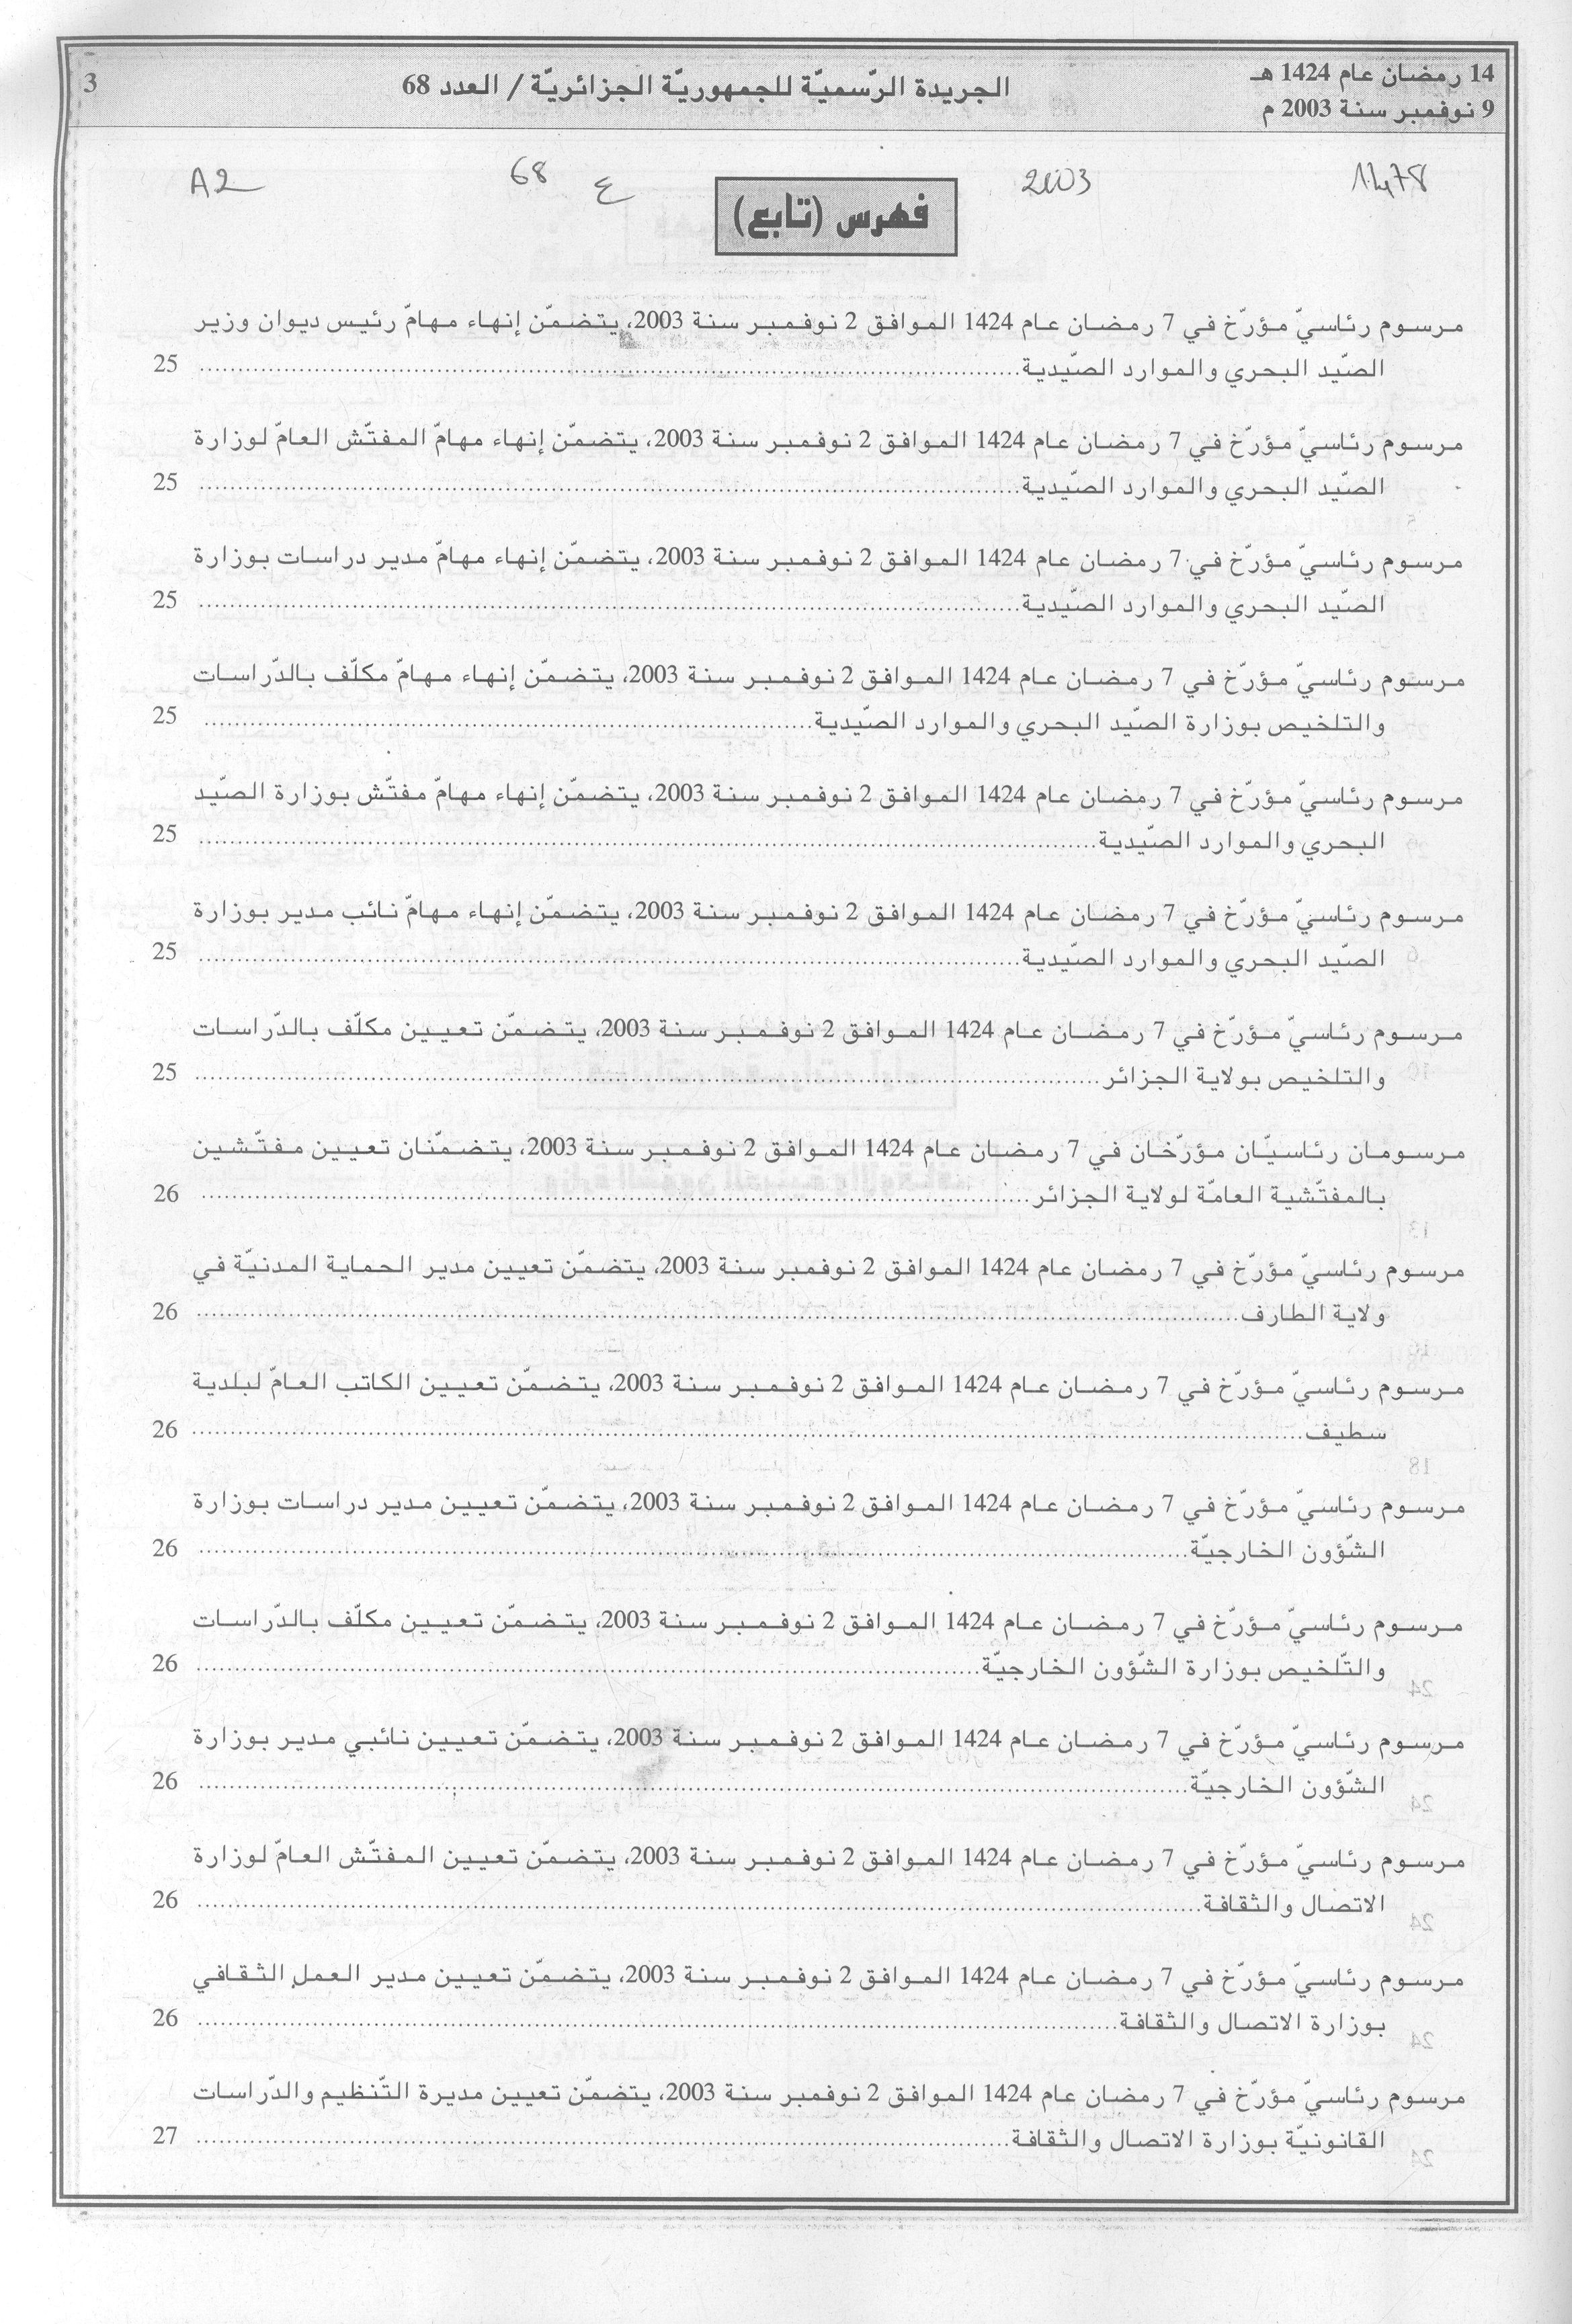 14 رمضان عام 1424 هـ
9 نوفمبر سنة 2003 م
الجريدة الرّسميّة للجمهوريّة الجزائريّة / العدد 68
3
1478 2003 ع 68 A2
فهرس (تابع)
مرسوم رئاسيّ مؤرّخ في 7 رمضان عام 1424 الموافق 2 نوفمبر سنة 2003، يتضمّن إنهاء مهامّ رئيس ديوان وزير
الصّيد البحري والموارد الصّيدية 25
مرسوم رئاسيّ مؤرّخ في 7 رمضان عام 1424 الموافق 2 نوفمبر سنة 2003، يتضمّن إنهاء مهامّ المفتّش العامّ لوزارة
الصّيد البحري والموارد الصّيدية 25
مرسوم رئاسيّ مؤرّخ في 7 رمضان عام 1424 الموافق 2 نوفمبر سنة 2003، يتضمّن إنهاء مهامّ مدير دراسات بوزارة
الصّيد البحري والموارد الصّيدية 25
مرسوم رئاسيّ مؤرّخ في 7 رمضان عام 1424 الموافق 2 نوفمبر سنة 2003، يتضمّن إنهاء مهامّ مكلّف بالدّراسات
والتلخيص بوزارة الصّيد البحري والموارد الصّيدية 25
مرسوم رئاسيّ مؤرّخ في 7 رمضان عام 1424 الموافق 2 نوفمبر سنة 2003، يتضمّن إنهاء مهامّ مفتّش بوزارة الصّيد
البحري والموارد الصّيدية 25
مرسوم رئاسيّ مؤرّخ في 7 رمضان عام 1424 الموافق 2 نوفمبر سنة 2003، يتضمّن إنهاء مهامّ نائب مدير بوزارة
الصّيد البحري والموارد الصّيدية 25
مرسوم رئاسيّ مؤرّخ في 7 رمضان عام 1424 الموافق 2 نوفمبر سنة 2003، يتضمّن تعيين مكلّف بالدّراسات
والتلخيص بولاية الجزائر 25
مرسومان رئاسيّان مؤرّخان في 7 رمضان عام 1424 الموافق 2 نوفمبر سنة 2003، يتضمّنان تعيين مفتّشين
بالمفتّشية العامّة لولاية الجزائر 26
مرسوم رئاسيّ مؤرّخ في 7 رمضان عام 1424 الموافق 2 نوفمبر سنة 2003، يتضمّن تعيين مدير الحماية المدنيّة في
ولاية الطارف 26
مرسوم رئاسيّ مؤرّخ في 7 رمضان عام 1424 الموافق 2 نوفمبر سنة 2003، يتضمّن تعيين الكاتب العامّ لبلدية
سطيف 26
مرسوم رئاسيّ مؤرّخ في 7 رمضان عام 1424 الموافق 2 نوفمبر سنة 2003، يتضمّن تعيين مدير دراسات بوزارة
الشّؤون الخارجيّة 26
مرسوم رئاسيّ مؤرّخ في 7 رمضان عام 1424 الموافق 2 نوفمبر سنة 2003، يتضمّن تعيين مكلّف بالدّراسات
والتّلخيص بوزارة الشّؤون الخارجيّة 26
مرسوم رئاسيّ مؤرّخ في 7 رمضان عام 1424 الموافق 2 نوفمبر سنة 2003، يتضمّن تعيين نائبي مدير بوزارة
الشّؤون الخارجيّة 26
مرسوم رئاسيّ مؤرّخ في 7 رمضان عام 1424 الموافق 2 نوفمبر سنة 2003، يتضمّن تعيين المفتّش العامّ لوزارة
الاتصال والثقافة 26
مرسوم رئاسيّ مؤرّخ في 7 رمضان عام 1424 الموافق 2 نوفمبر سنة 2003، يتضمّن تعيين مدير العمل الثقافي
بوزارة الاتصال والثقافة 26
مرسوم رئاسيّ مؤرّخ في 7 رمضان عام 1424 الموافق 2 نوفمبر سنة 2003، يتضمّن تعيين مديرة التّنظيم والدّراسات
القانونيّة بوزارة الاتصال والثقافة 27